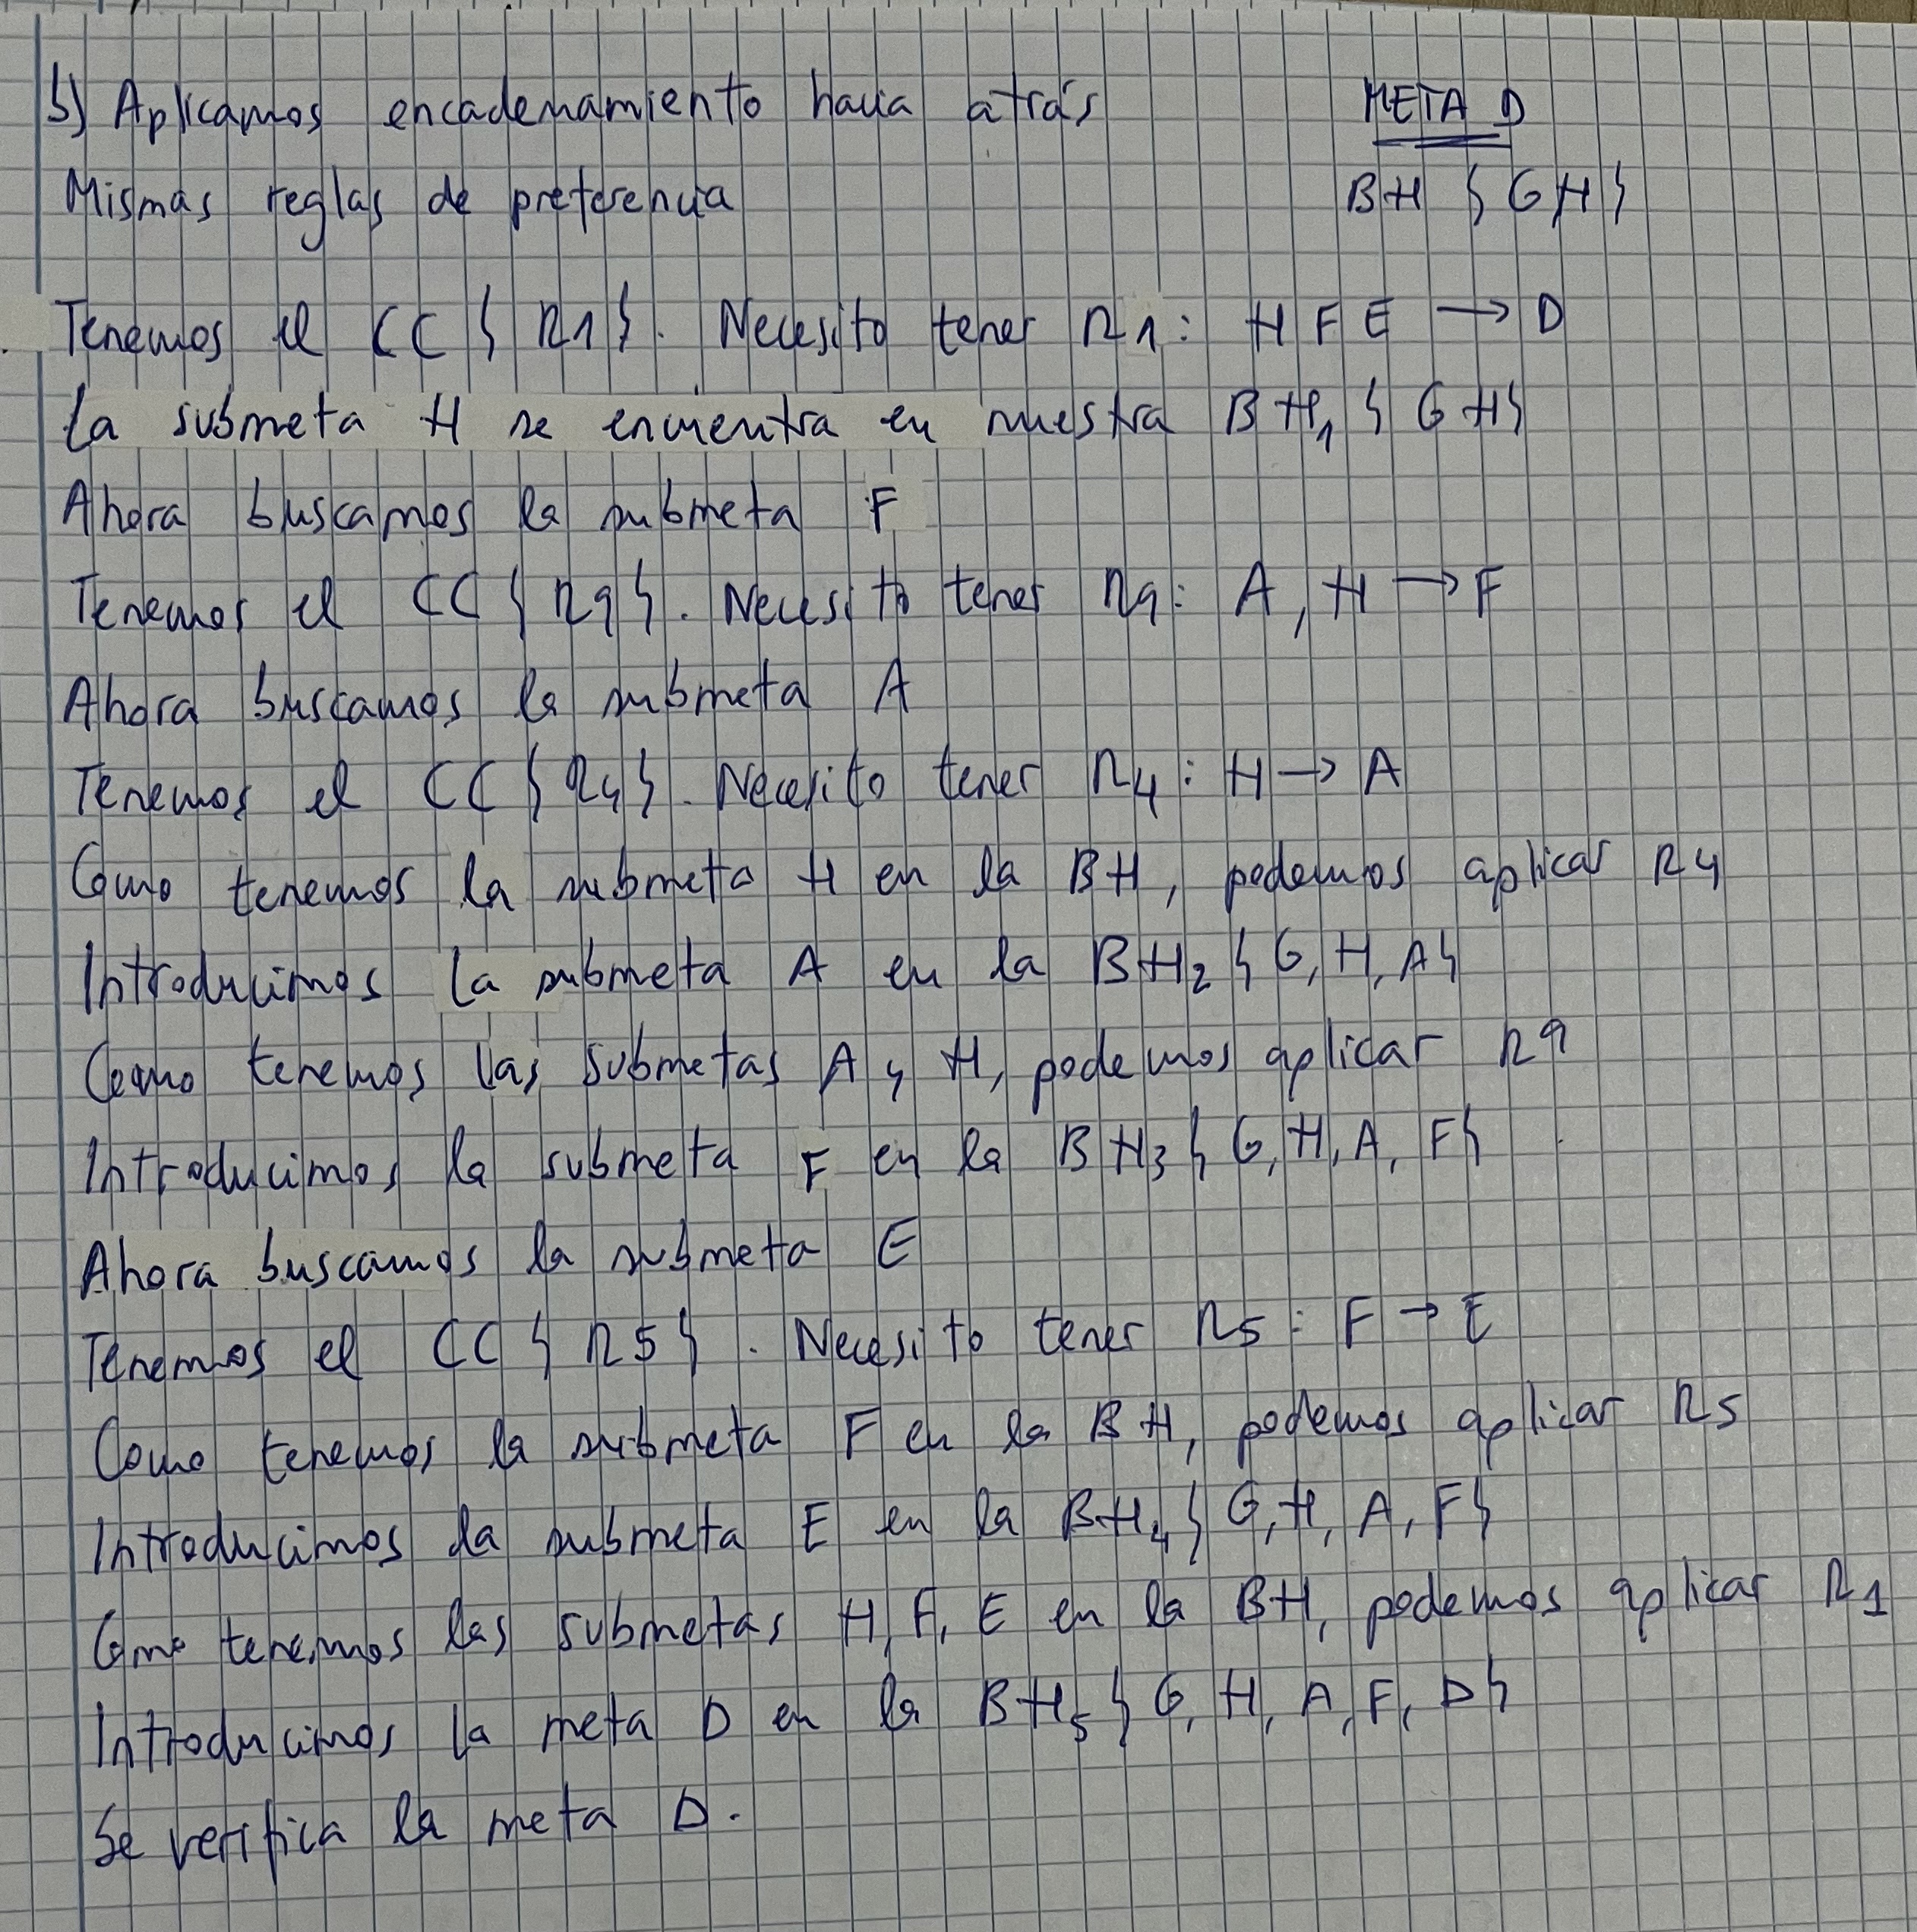 b) Aplicamos encadenamiento hacia atrás META D
Mismas reglas de preferencia BH {GH}
Tenemos el CC {R1}. Necesito tener R1: H F E → D
La submeta H se encuentra en nuestra BH1 {GH}
Ahora buscamos la submeta F
Tenemos el CC {R9}. Necesito tener R9: A, H → F
Ahora buscamos la submeta A
Tenemos el CC {R4}. Necesito tener R4: H → A
Como tenemos la submeta H en la BH, podemos aplicar R4
Introducimos la submeta A en la BH2 {G, H, A}
Como tenemos las submetas A y H, podemos aplicar R9
Introducimos la submeta F en la BH3 {G, H, A, F}
Ahora buscamos la submeta E
Tenemos el CC {R5}. Necesito tener R5: F → E
Como tenemos la submeta F en la BH, podemos aplicar R5
Introducimos la submeta E en la BH4 {G, H, A, F}
Como tenemos las submetas H, F, E en la BH, podemos aplicar R1
Introducimos la meta D en la BH5 {G, H, A, F, D}
Se verifica la meta D.